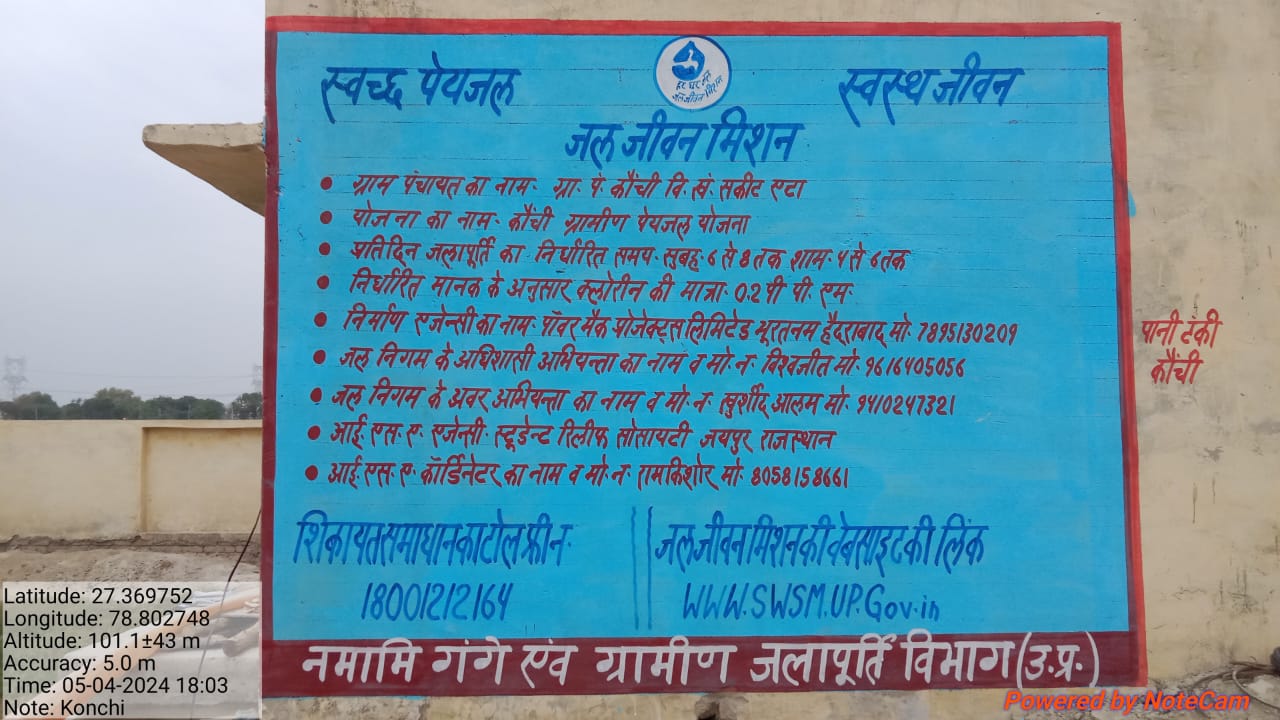 स्वच्छ पेयजल
हर घर जल
जल जीवन मिशन
स्वस्थ जीवन
जल जीवन मिशन
• ग्राम पंचायत का नाम- ग्रा. पं. कौंची वि. खं. सकीट एटा
• योजना का नाम- कौंची ग्रामीण पेयजल योजना
• प्रतिदिन जलापूर्ति का निर्धारित समय- सुबह- 6 से 8 तक शाम- 4 से 6 तक
• निर्धारित मानक के अनुसार क्लोरीन की मात्रा- 0.2 पी पी एम.
• निर्माण एजेन्सी का नाम- पॉवर मैक प्रोजेक्ट्स लिमिटेड भूरतनम हैदराबाद मो- 7895130209
• जल निगम के अधिशासी अभियन्ता का नाम व मो. न. विश्वजीत मो- 9616405056
• जल निगम के अवर अभियन्ता का नाम व मो. न. खुर्शीद आलम मो- 9410247321
• आई. एस. ए. एजेन्सी- स्टूडेन्ट रिलीफ सोसायटी जयपुर राजस्थान
• आई. एस. ए. कॉर्डिनेटर का नाम व मो. न. रामकिशोर मो- 8058158661
शिकायत समाधान का टोल फ्री न.
18001212164
जल जीवन मिशन की वेबसाइट की लिंक
WWW.SWSM.UP.Gov.in
नमामि गंगे एंव ग्रामीण जलापूर्ति विभाग (उ.प्र.)
पानी टंकी
कौंची
Latitude: 27.369752
Longitude: 78.802748
Altitude: 101.1±43 m
Accuracy: 5.0 m
Time: 05-04-2024 18:03
Note: Konchi
Powered by NoteCam